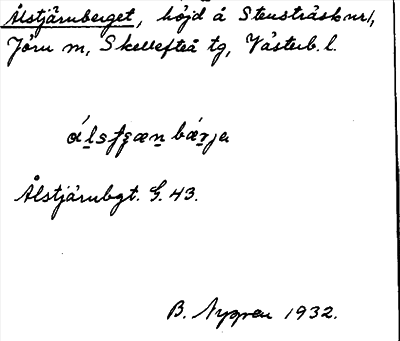 Ålstjärnberget, höjd å Stensträsk nr 1,
Jörn sn, Skellefteå tg, Västerb. l.
Ålstjärnbgt. G. 43.
B. Nygren 1932.